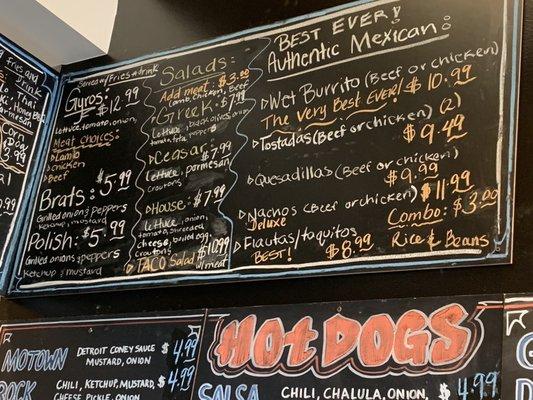 Fries and
Corn
Dog
3.99
Served w/Fries & drink
Gyros: $12.99
lettuce, tomato, onion
Meat choices:
Lamb
chicken
Beef
Brats: $5.99
Grilled onions & peppers
Ketchup & mustard
Polish: $5.99
Grilled onions & peppers
Ketchup & mustard
Salads:
Add meat: $3.00
Lamb, chicken, Beef
Greek: $7.99
lettuce, olives, onion
tomato, feta, peppers
Ceasar: $7.99
lettuce, parmesan
croutons
House: $7.99
lettuce, onion,
tomato, shredded
cheese, boiled egg
croutons
Taco Salad $10.99
w/meat
BEST EVER!
Authentic Mexican:
Wet Burrito (Beef or chicken)
The Very Best Ever! $10.99
Tostadas (Beef or chicken) (2)
$9.49
Quesadillas (Beef or chicken)
$9.99
Nachos (Beef or chicken) $11.99
Deluxe
Combo: $3.00
Rice & Beans
Flautas/taquitos
BEST! $8.99
MOTOWN
DETROIT CONEY SAUCE
MUSTARD, ONION
$4.99
ROCK
CHILI, KETCHUP, MUSTARD,
CHEESE, PICKLE, ONION
$4.99
HOT DOGS
SALSA
CHILI, CHALULA, ONION,
$4.99